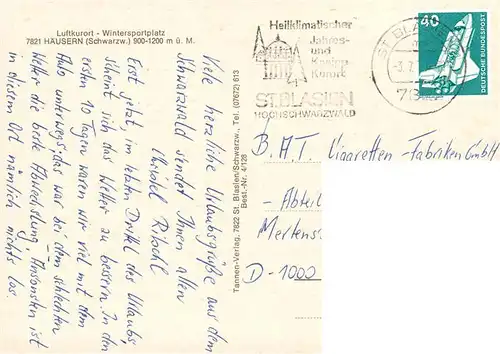 Luftkurort - Wintersportplatz
7821 HÄUSERN (Schwarzw.) 900-1200 m ü. M.
Viele herzliche Urlaubsgrüße aus dem
Schwarzwald sendet Ihnen allen
Christel
Erst jetzt, im letzten Drittel des Urlaubs,
scheint sich das Wetter zu bessern. In den
ersten 10 Tagen waren wir viel mit dem
Auto unterwegs, das war bei dem schlechten
Wetter die beste Abwechslung. Ansonsten ist
in diesem Ort nämlich nichts los.
Tannen-Verlag, 7822 St. Blasien/Schwarzw., Tel. (07672) 613
Best.-Nr. 4/128
Heilklimatischer
Jahres-
und
Kneipp-
Kurort
ST. BLASIEN
HOCHSCHWARZWALD
ST BLASIEN
40
DEUTSCHE BUNDESPOST
B.A.T. Cigaretten-Fabriken GmbH
- Abteil
Mertens
D-1000